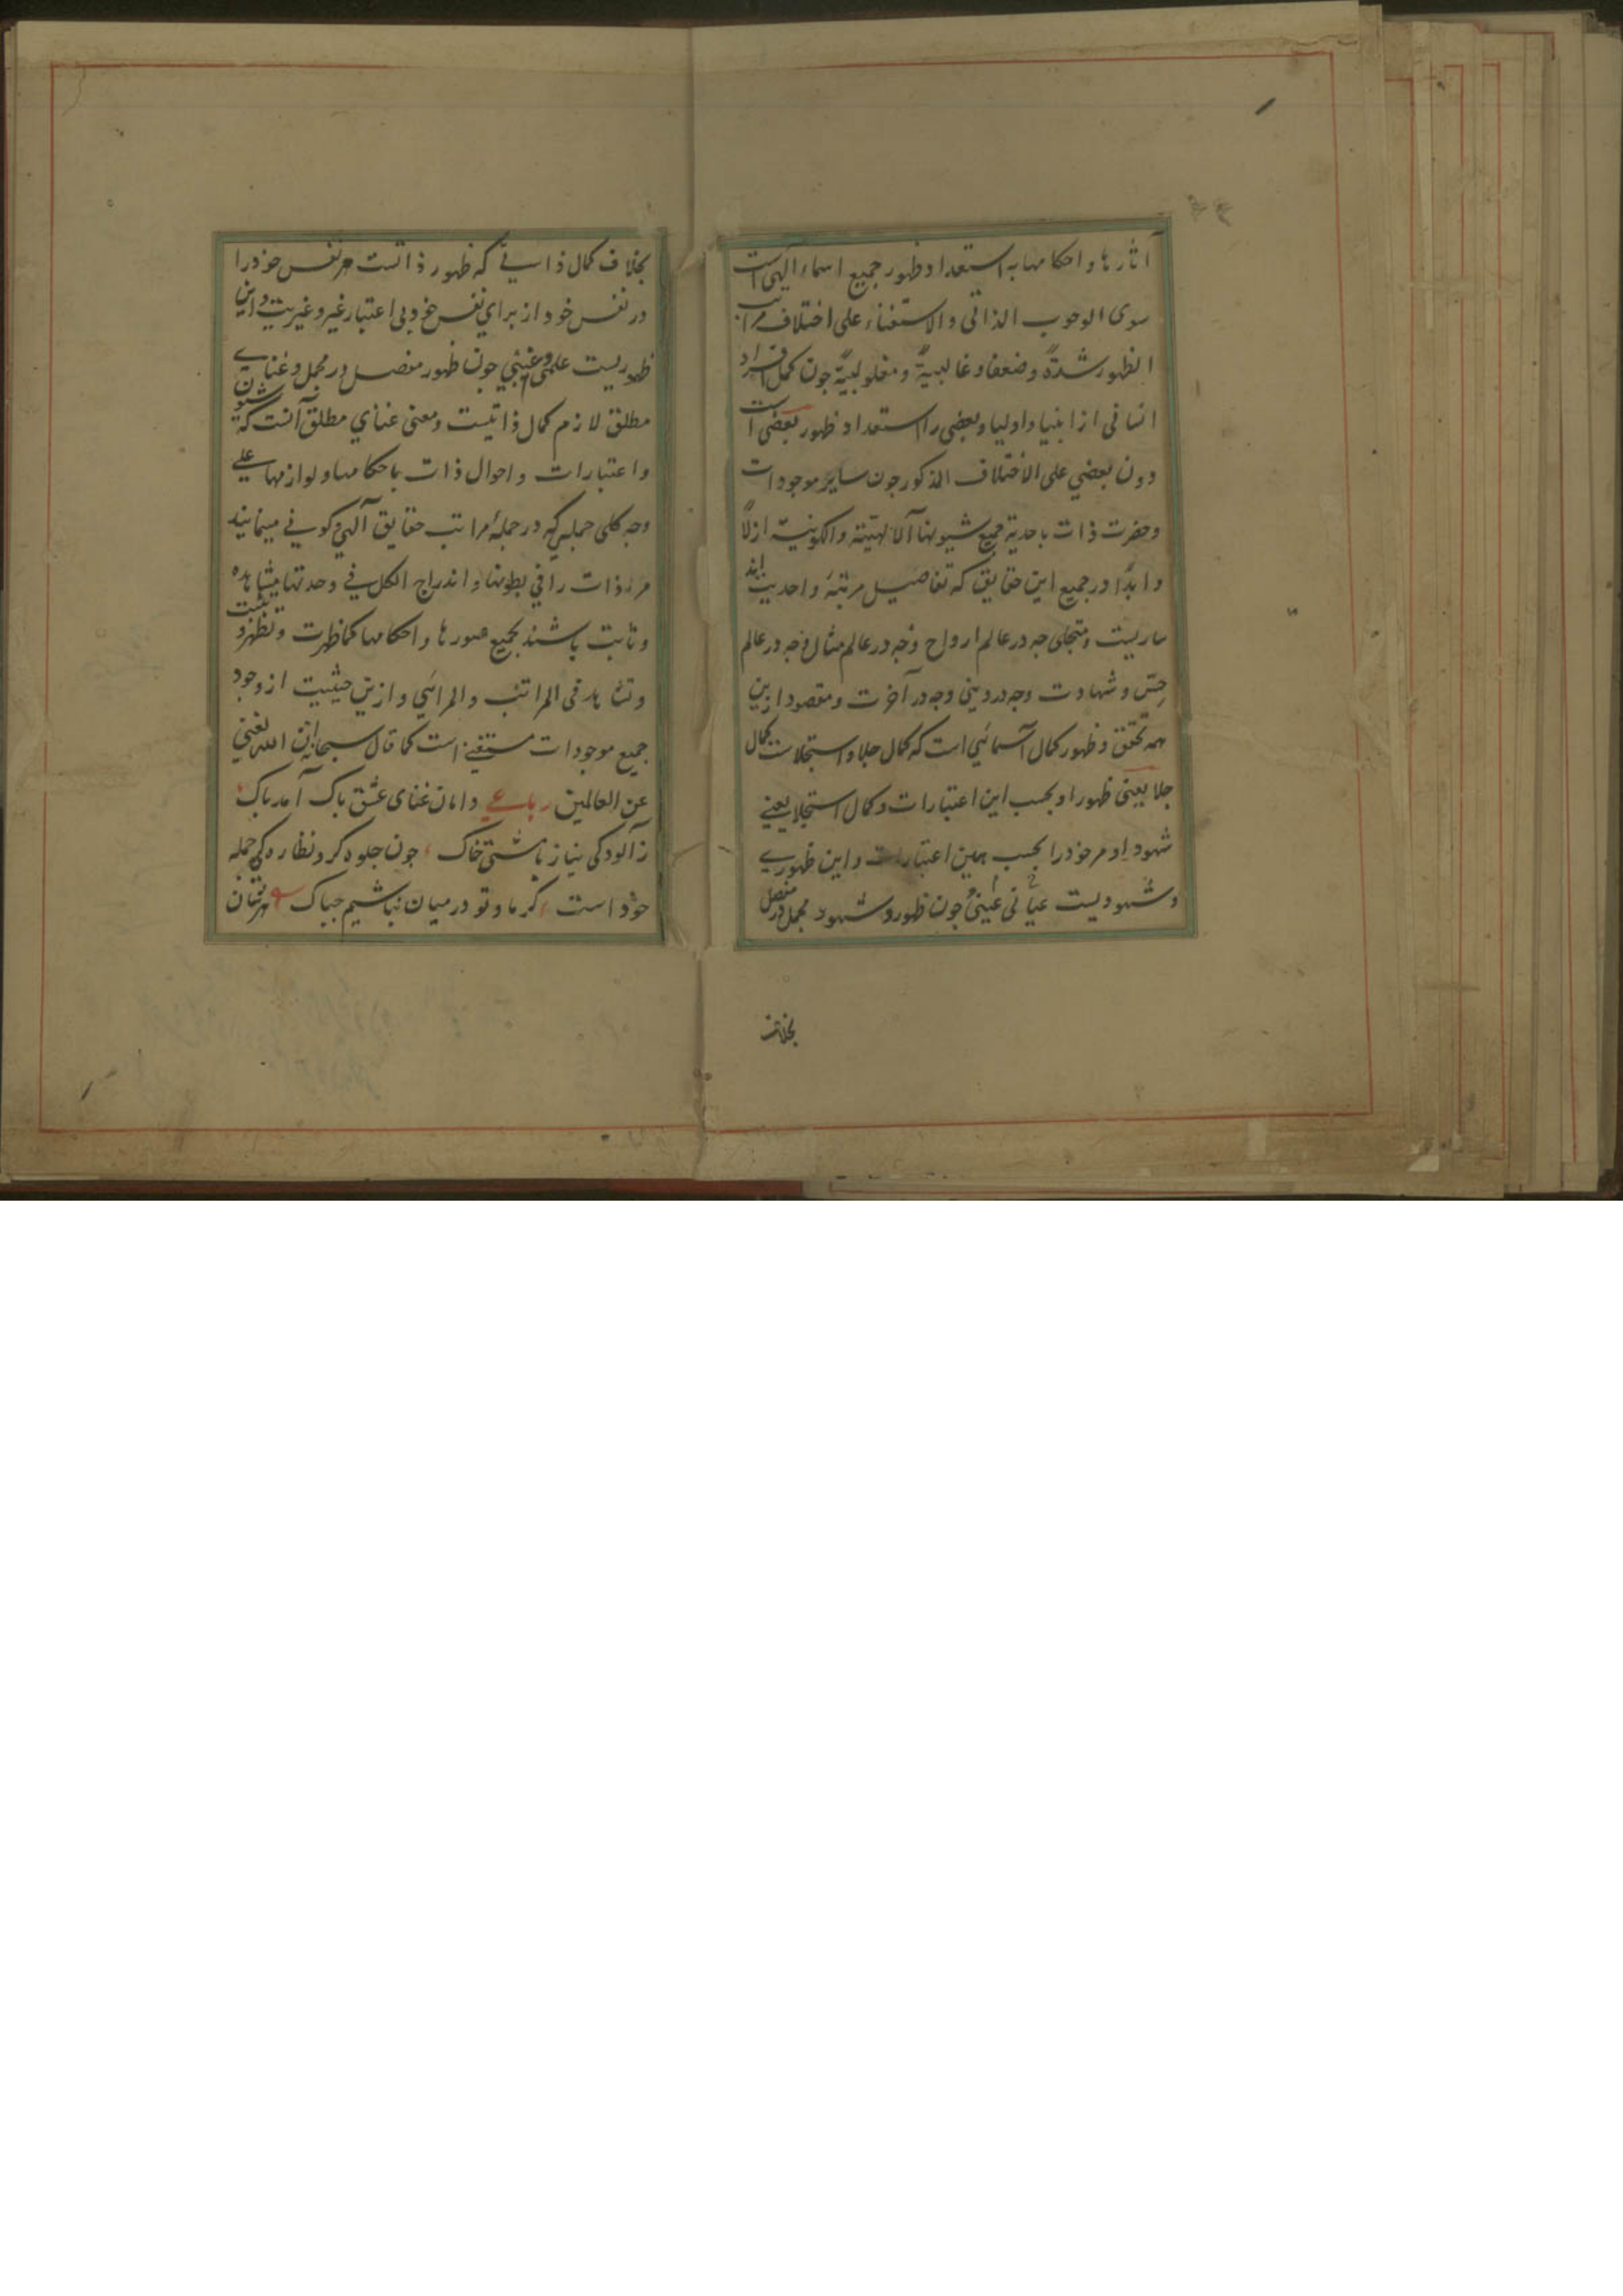 آثارها و احکامها به استعداد ظهور جمیع اسماء الهی است
سوی الوجوب الذاتی والاستغناء علی اختلاف مراتب
الظهور شدةً وضعفا وغالبیةً ومغلوبیةً جون کمل افراد
انسانی از انبیا و اولیا و بعضی را استعداد ظهور بعضی است
دون بعضی علی الاختلاف المذکور جون سایر موجودات
وحضرت ذات باحدیة جمیع شیونها الالهیّة والکونیة ازلاً
و ابدًا در جمیع این حقایق که تفاصیل مرتبهٔ واحدیت اند
ساریست ومتجلی جه در عالم ارواح وجه در عالم مثال وجه در عالم
حِسّ و شهادت وجه در دنیی وجه در آخرت ومقصود ازین
همه تحقق و ظهور کمال اسمائی است که کمال جلا و استجلاست کمال
جلا یعنی ظهور او بحسب این اعتبارات و کمال استجلا یعنی
شهود او مر خود را بحسب همین اعتبارات و این ظهوری
وشهودیست عیانی عینی جون ظهور و شهود مجمل در مفصل
بخلاف
بخلاف کمال ذاتی که ظهور ذاتست مر نفس خود را
در نفس خود از برای نفس خود بی اعتبار غیر و غیریت واین
ظهوریست علمی غیبی جون ظهور مفصل در مجمل و غنای
مطلق لازم کمال ذاتیست ومعنی غنای مطلق آنست که شیون
و اعتبارات و احوال ذات باحکامها و لوازمها علی
وجه کلی جملی که در جملهٔ مراتب حقایق الهی و کونی مینمایند
مر ذات را فی بطونها و اندراج الکل فی وحدتها مشاهده
وثابت باشند بجمیع صورها و احکامها کما ظهرت وتظهر وتثبت
وتشاهد فی المراتب والمرائی وازین حیثیت از وجود
جمیع موجودات مستغنی است کما قال سبحانه ان الله لغنی
عن العالمین رباعی دامان غنای عشق باک آمد باک
ز آلودکی نیاز با مشتی خاک جون جلوه کر و نظاره کی جمله
خود است کر ما و تو در میان نباشیم جباک